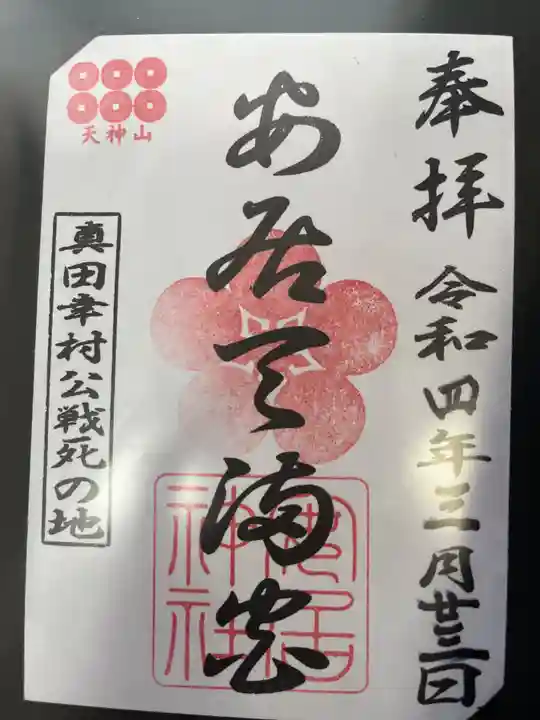 奉拝
令和四年三月廿三日
安居天満宮
天神山
真田幸村公戦死の地
安居
神社